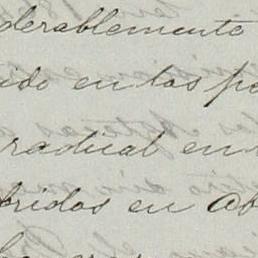 derablemente
ido en las pa
radical en
bridos en Ab